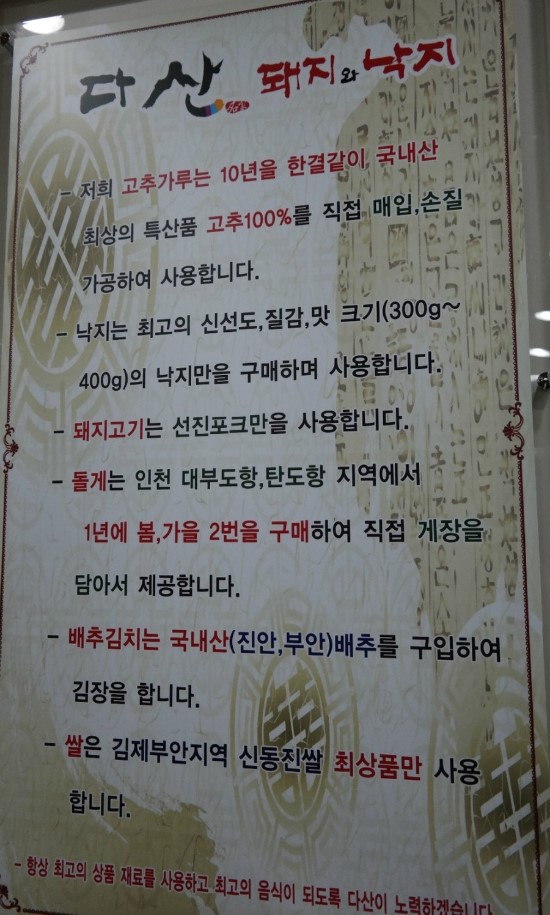 다산 돼지와 낙지
- 저희 고추가루는 10년을 한결같이 국내산
최상의 특산품 고추100%를 직접 매입,손질
가공하여 사용합니다.
- 낙지는 최고의 신선도,질감,맛 크기(300g~
400g)의 낙지만을 구매하며 사용합니다.
- 돼지고기는 선진포크만을 사용합니다.
- 돌게는 인천 대부도항,탄도항 지역에서
1년에 봄,가을 2번을 구매하여 직접 게장을
담아서 제공합니다.
- 배추김치는 국내산(진안,부안)배추를 구입하여
김장을 합니다.
- 쌀은 김제부안지역 신동진쌀 최상품만 사용
합니다.
- 항상 최고의 상품 재료를 사용하고 최고의 음식이 되도록 다산이 노력하겠습니다